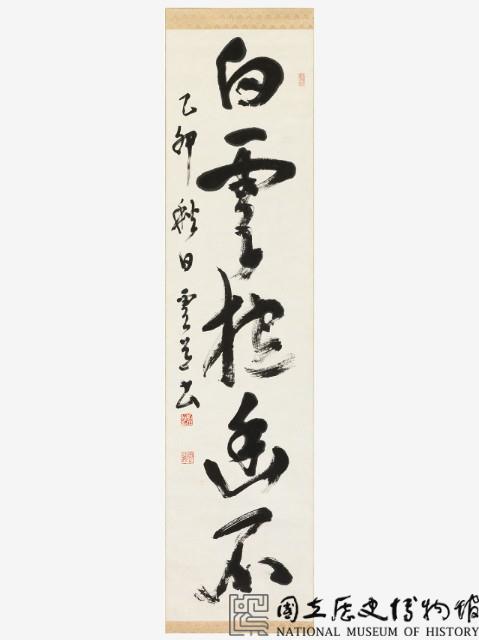 白雲抱幽石
乙卯秋日雲道書
國立歷史博物館
NATIONAL MUSEUM OF HISTORY